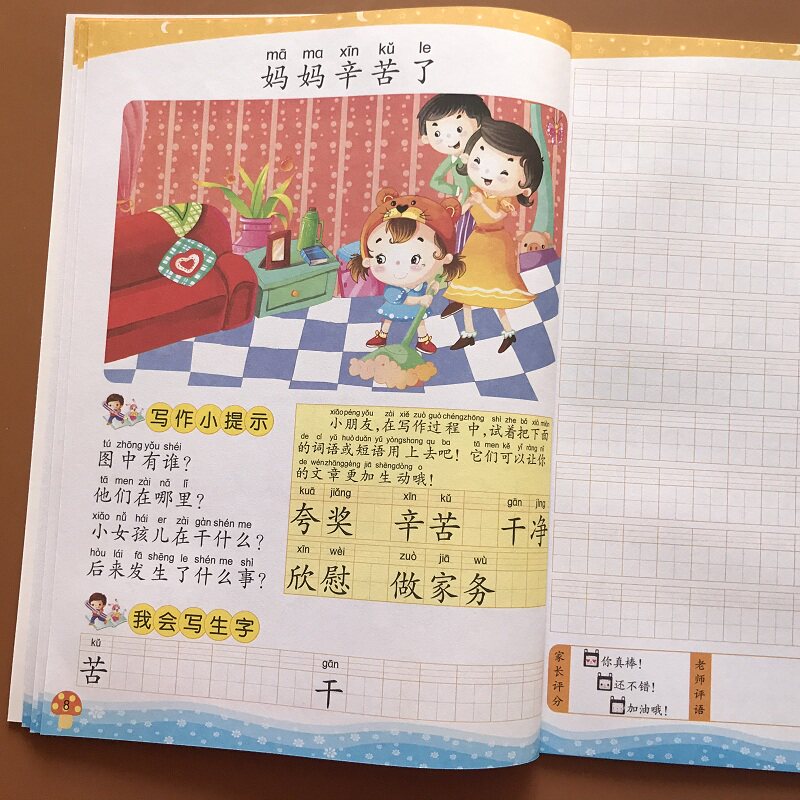 mā ma xīn kǔ le
妈妈辛苦了
写作小提示
tú zhōng yǒu shéi
图中有谁？
tā men zài nǎ lǐ
他们在哪里？
xiǎo nǚ hái er zài gàn shén me
小女孩儿在干什么？
hòu lái fā shēng le shén me shì
后来发生了什么事？
xiǎo péng yǒu zài xiě zuò guò chéng zhōng shì zhe bǎ xià miàn
小朋友，在写作过程中，试着把下面
de cí yǔ huò duǎn yǔ yòng shang qu ba tā men kě yǐ ràng nǐ
的词语或短语用上去吧！它们可以让你
de wén zhāng gèng jiā shēng dòng o
的文章更加生动哦！
kuā jiǎng xīn kǔ gān jìng
夸奖 辛苦 干净
xīn wèi zuò jiā wù
欣慰 做家务
我会写生字
kǔ gān
苦 干
8
家长评分
你真棒！
还不错！
加油哦！
老师评语